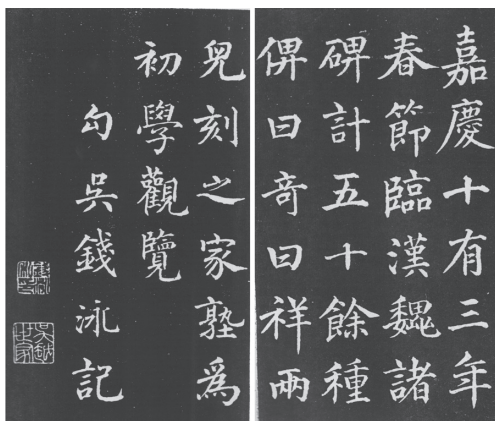 嘉慶十有三年
春節臨漢魏諸
碑計五十餘種
俾曰奇曰祥兩
兒刻之家塾為
初學觀覽
句吳錢泳記